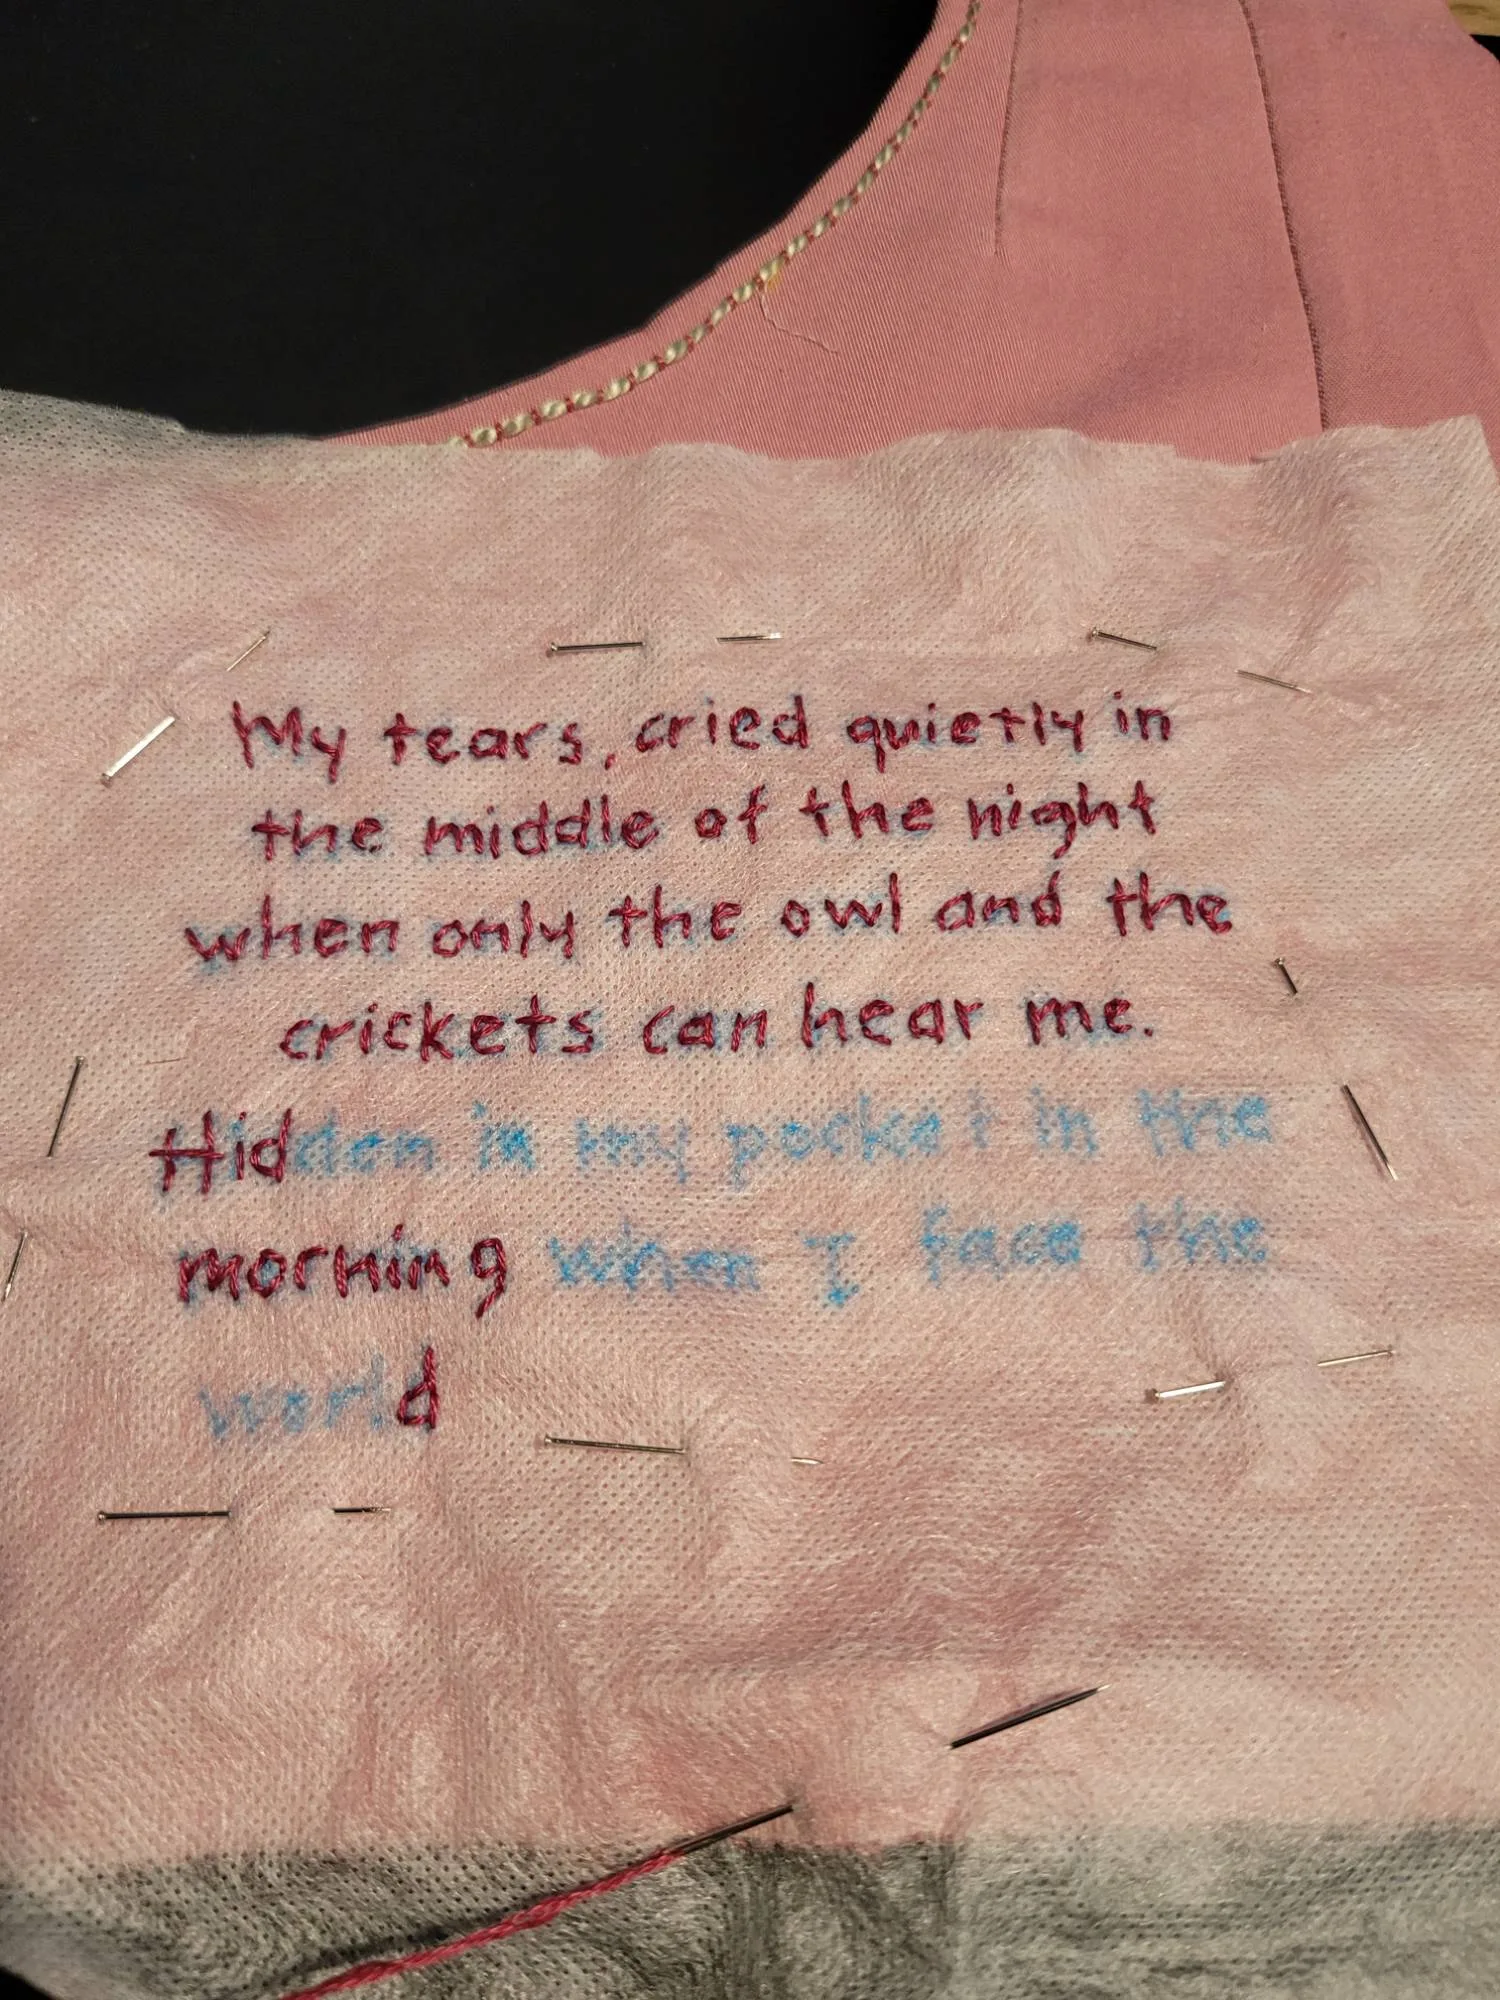 My tears, cried quietly in
the middle of the night
when only the owl and the
crickets can hear me.
Hidden in my pocket in the
morning when I face the
world